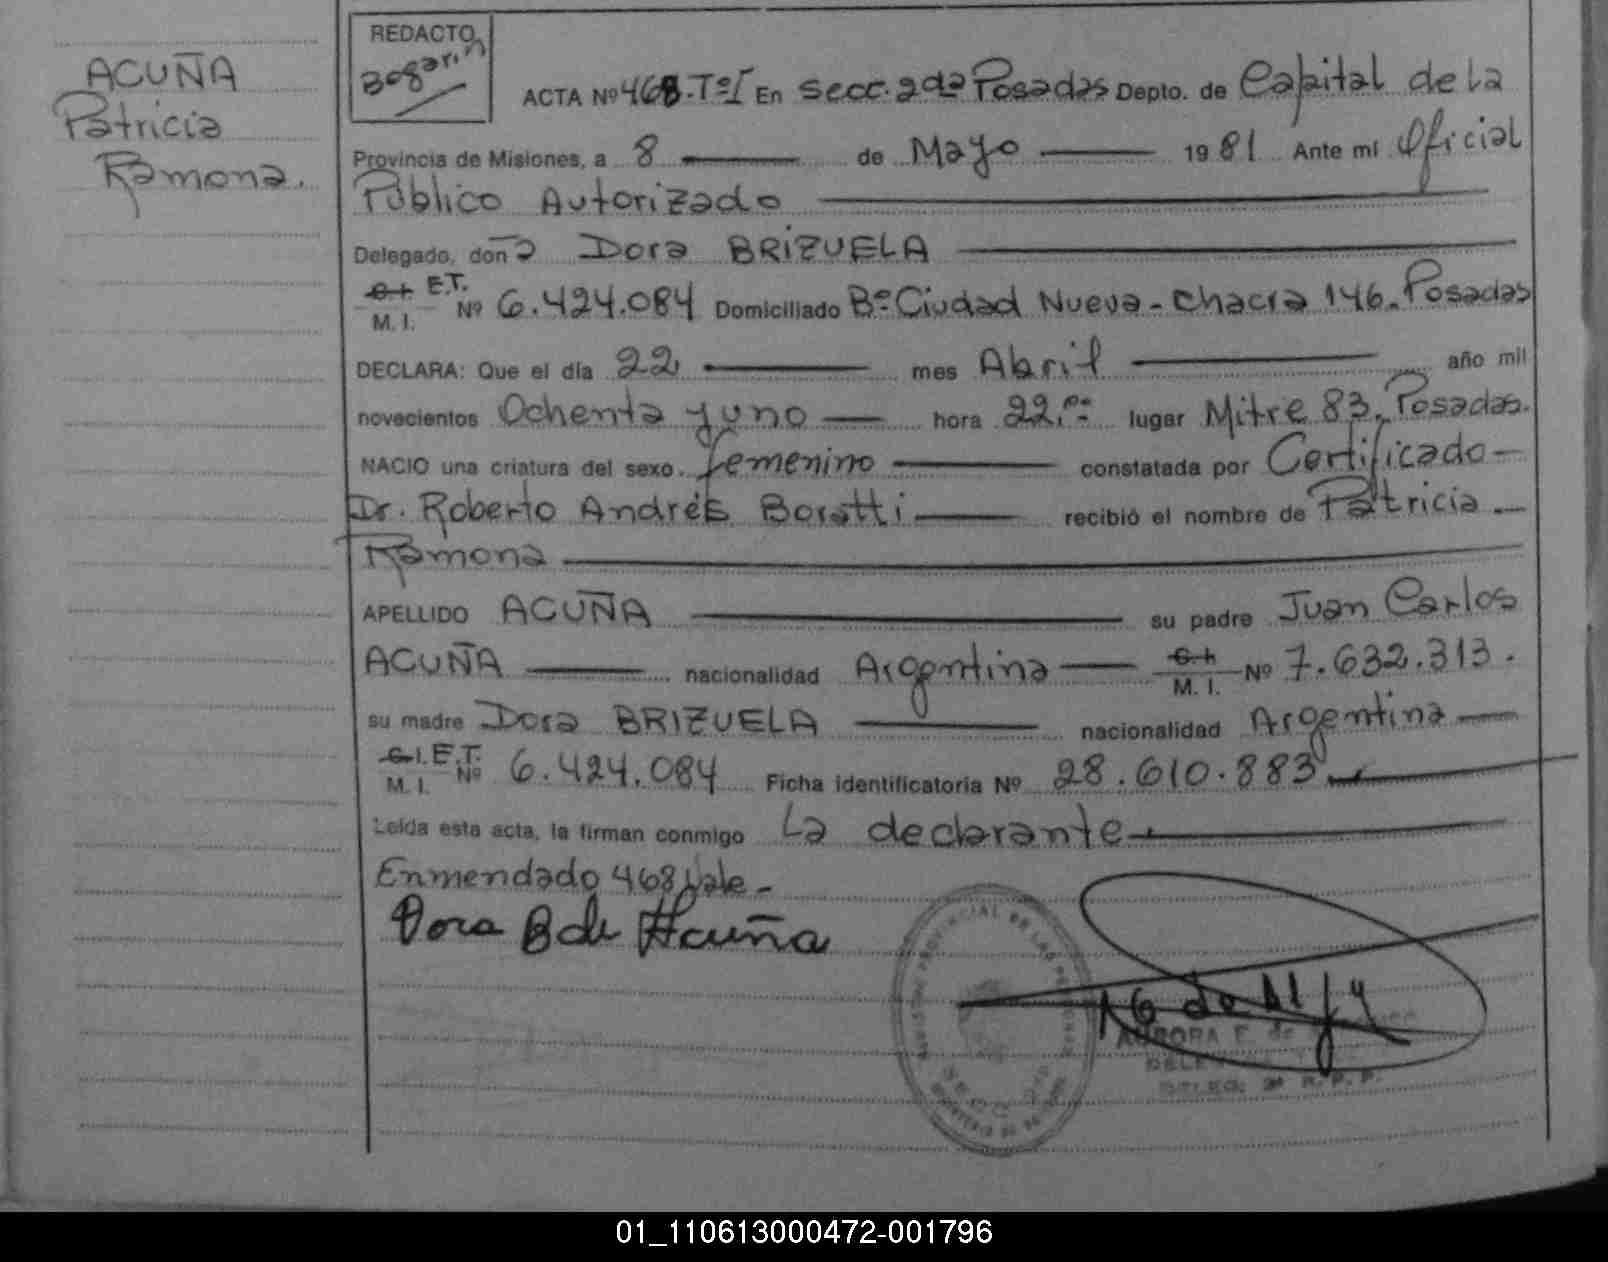 ACUÑA
Patricia
Ramona.
REDACTO
Bogarin
ACTA Nº 468-Tº I En Secc. 2da Posadas Depto. de Capital de la
Provincia de Misiones, a 8 de Mayo 1981 Ante mi Oficial
Público Autorizado
Delegado, doña Dora BRIZUELA
C.I. E.T.
M. I. Nº 6.424.084 Domiciliado Bº Ciudad Nueva - Chacra 146. Posadas
DECLARA: Que el día 22 mes Abril año mil
novecientos Ochenta y uno hora 22,00 lugar Mitre 83. Posadas.
NACIO una criatura del sexo. femenino constatada por Certificado -
Dr. Roberto Andrés Boratti recibió el nombre de Patricia
Ramona
APELLIDO ACUÑA su padre Juan Carlos
ACUÑA nacionalidad Argentina C.I. M. I. Nº 7.632.313.
su madre Dora BRIZUELA nacionalidad Argentina
C.I. E.T.
M. I. Nº 6.424.084 Ficha identificatoria Nº 28.610.883
Leída esta acta, la firman conmigo La declarante
Enmendado 468 Vale -
Dora B de Acuña
AURORA E. de
01_110613000472-001796